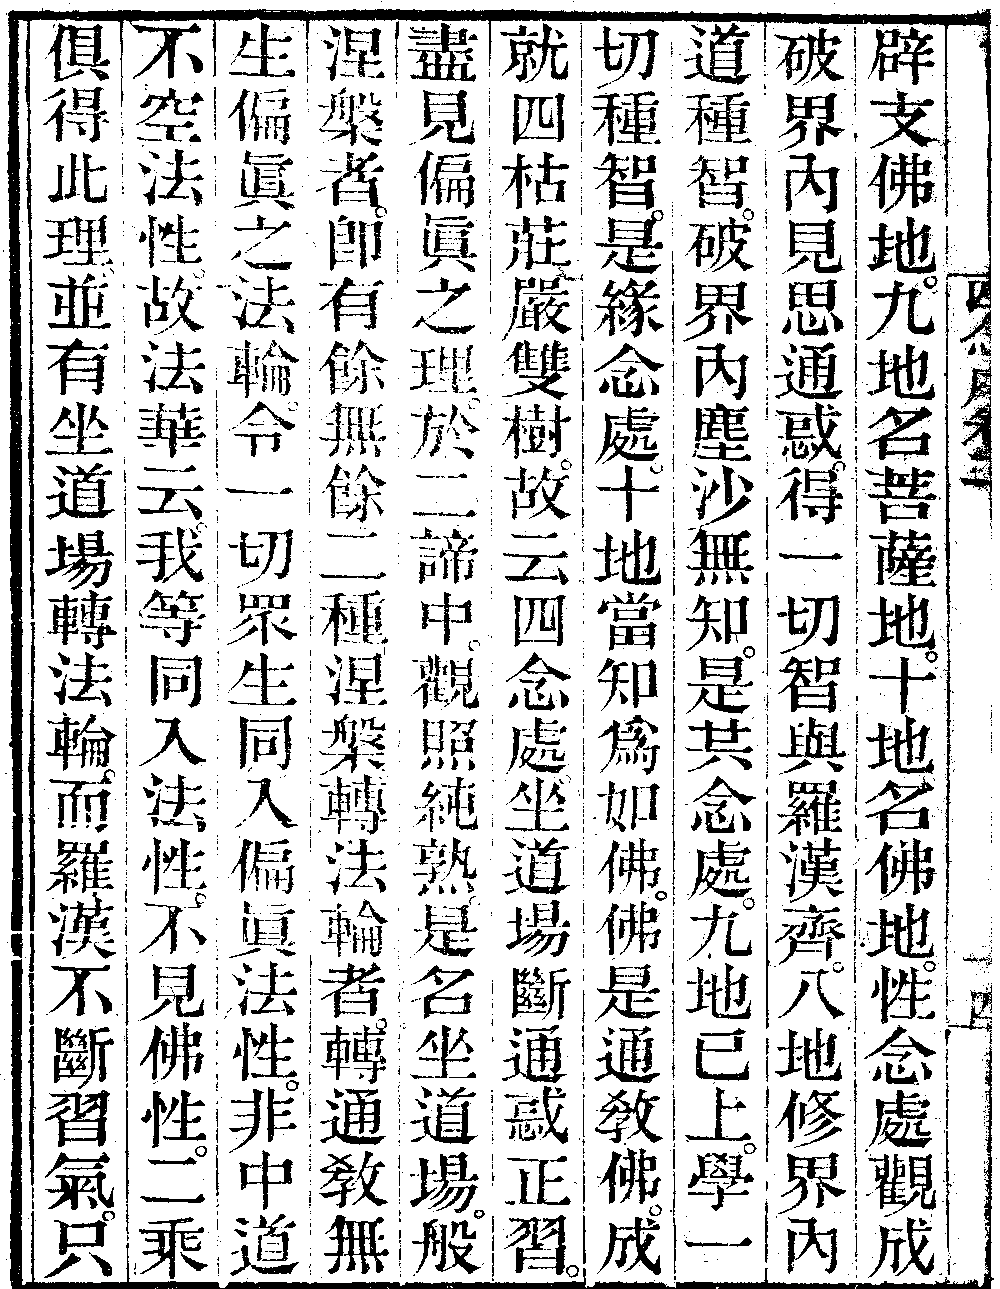 辟支佛地。九地名菩薩地。十地名佛地。性念處觀成
破界內見思通惑。得一切智與羅漢齊。八地修界內
道種智。破界內塵沙無知。是共念處。九地已上。學一
切種智。是緣念處。十地當知爲如佛。佛是通教佛。成
就四枯莊嚴雙樹。故云四念處坐道場斷通惑正習。
盡見偏眞之理。於二諦中。觀照純熟。是名坐道場。般
涅槃者。卽有餘無餘二種涅槃轉法輪者。轉通教無
生偏眞之法輪。令一切眾生同入偏眞法性。非中道
不空法性。故法華云。我等同入法性。不見佛性。二乘
俱得此理。並有坐道場轉法輪。而羅漢不斷習氣。只